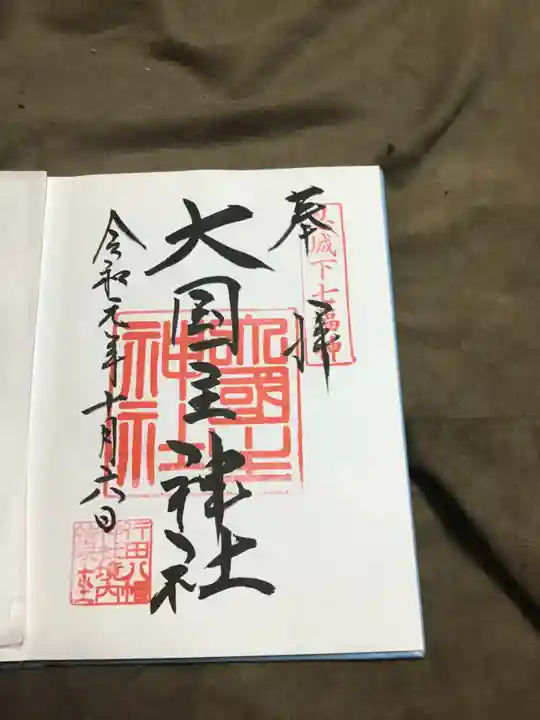 奉拝
城下七福神
大国主神社
令和元年十月六日
大國主
神社
行田八幡
神社境内